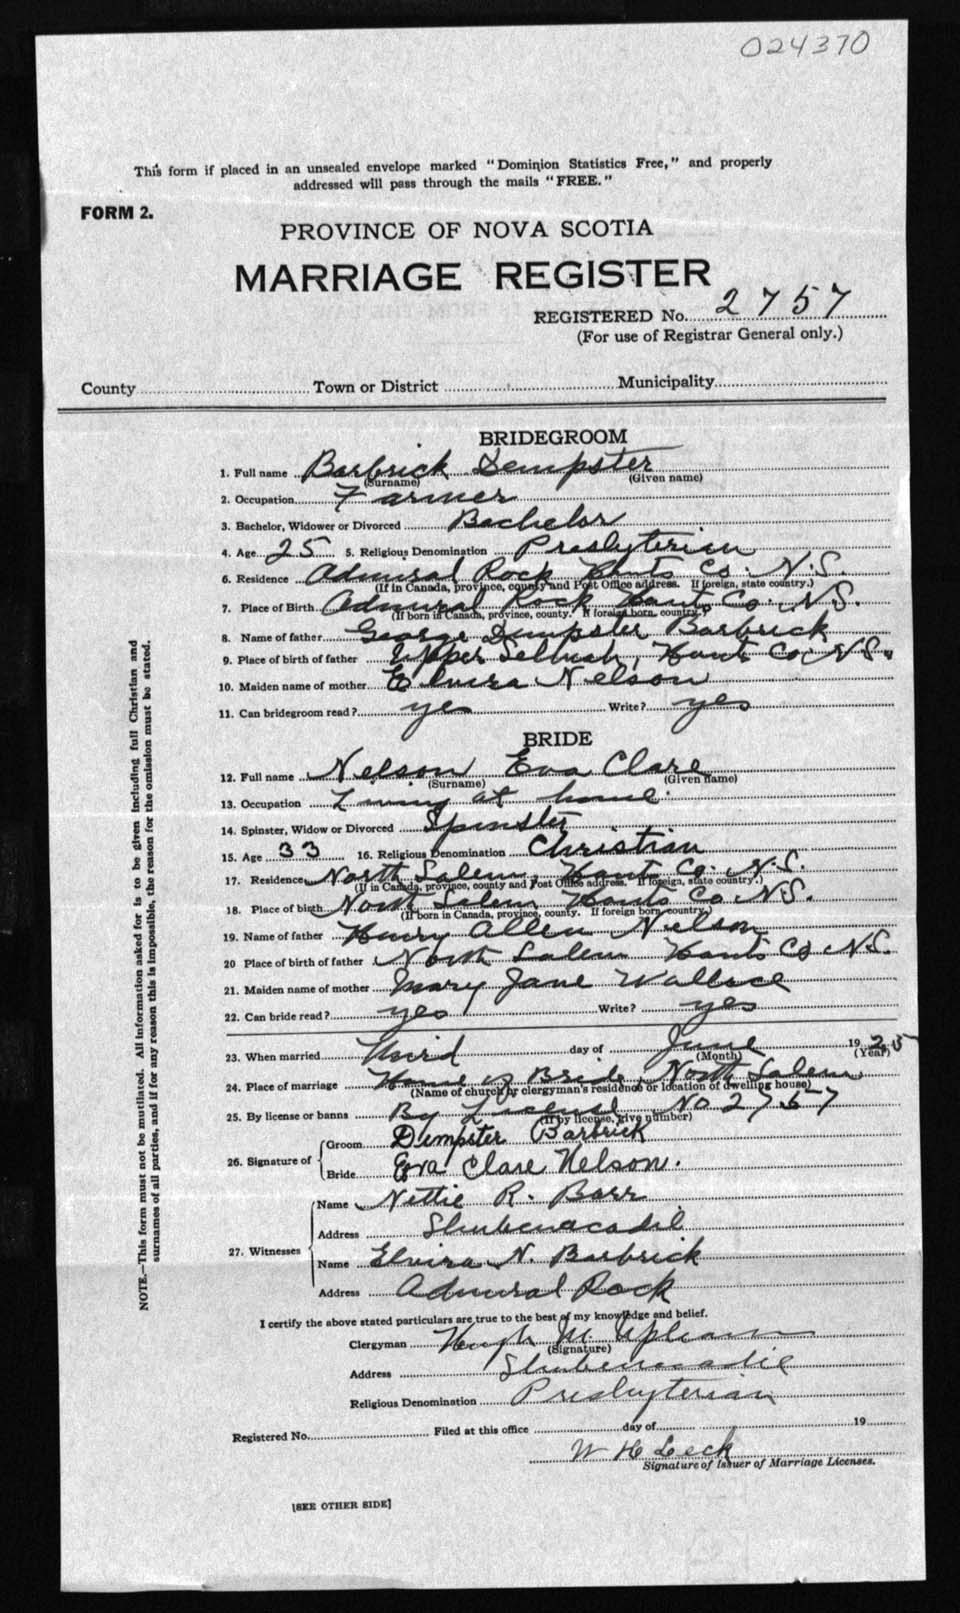 024370
This form if placed in an unsealed envelope marked "Dominion Statistics Free," and properly
addressed will pass through the mails "FREE."
FORM 2.
PROVINCE OF NOVA SCOTIA
MARRIAGE REGISTER
REGISTERED No. 2757
(For use of Registrar General only.)
County Town or District Municipality
BRIDEGROOM
1. Full name Barbrick Dempster
(Surname) (Given name)
2. Occupation Farmer
3. Bachelor, Widower or Divorced Bachelor
4. Age 25 5. Religious Denomination Presbyterian
6. Residence Admiral Rock Hants Co. N.S.
(If in Canada, province, county and Post Office address. If foreign, state country.)
7. Place of Birth Admiral Rock Hants Co. N.S.
(If born in Canada, province, county. If foreign born, country.)
8. Name of father George Dempster Barbrick
9. Place of birth of father Upper Selmah, Hants Co N.S.
10. Maiden name of mother Elvira Nelson
11. Can bridegroom read? yes Write? yes
BRIDE
12. Full name Nelson Eva Clare
(Surname) (Given name)
13. Occupation Living at home.
14. Spinster, Widow or Divorced Spinster
15. Age 33 16. Religious Denomination Christian
17. Residence North Salem, Hants Co. N.S.
(If in Canada, province, county and Post Office address. If foreign, state country.)
18. Place of birth North Salem Hants Co N.S.
(If born in Canada, province, county. If foreign born, country.)
19. Name of father Henry Allen Nelson
20 Place of birth of father North Salem Hants Co N.S.
21. Maiden name of mother Mary Jane Wallace
22. Can bride read? yes Write? yes
23. When married Third day of June 1925
(Month) (Year)
24. Place of marriage Home of Bride, North Salem
(Name of church or clergyman's residence or location of dwelling house)
25. By license or banns By License No 2757
(If by license, give number)
26. Signature of Groom Dempster Barbrick
Bride Eva Clare Nelson.
27. Witnesses Name Nettie R. Barr
Address Shubenacadie
Name Elvira N. Barbrick
Address Admiral Rock
I certify the above stated particulars are true to the best of my knowledge and belief.
Clergyman Hugh M. Upham
(Signature)
Address Shubenacadie
Religious Denomination Presbyterian
Registered No. Filed at this office day of 19
W H Leck
Signature of Issuer of Marriage Licenses.
[SEE OTHER SIDE]
NOTE.—This form must not be mutilated. All information asked for is to be given including full Christian and
surnames of all parties, and if for any reason this is impossible, the reason for the omission must be stated.